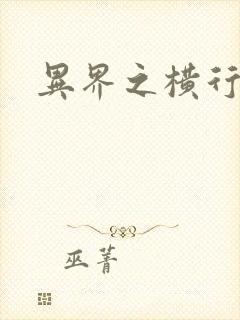 異界之橫行
巫菁